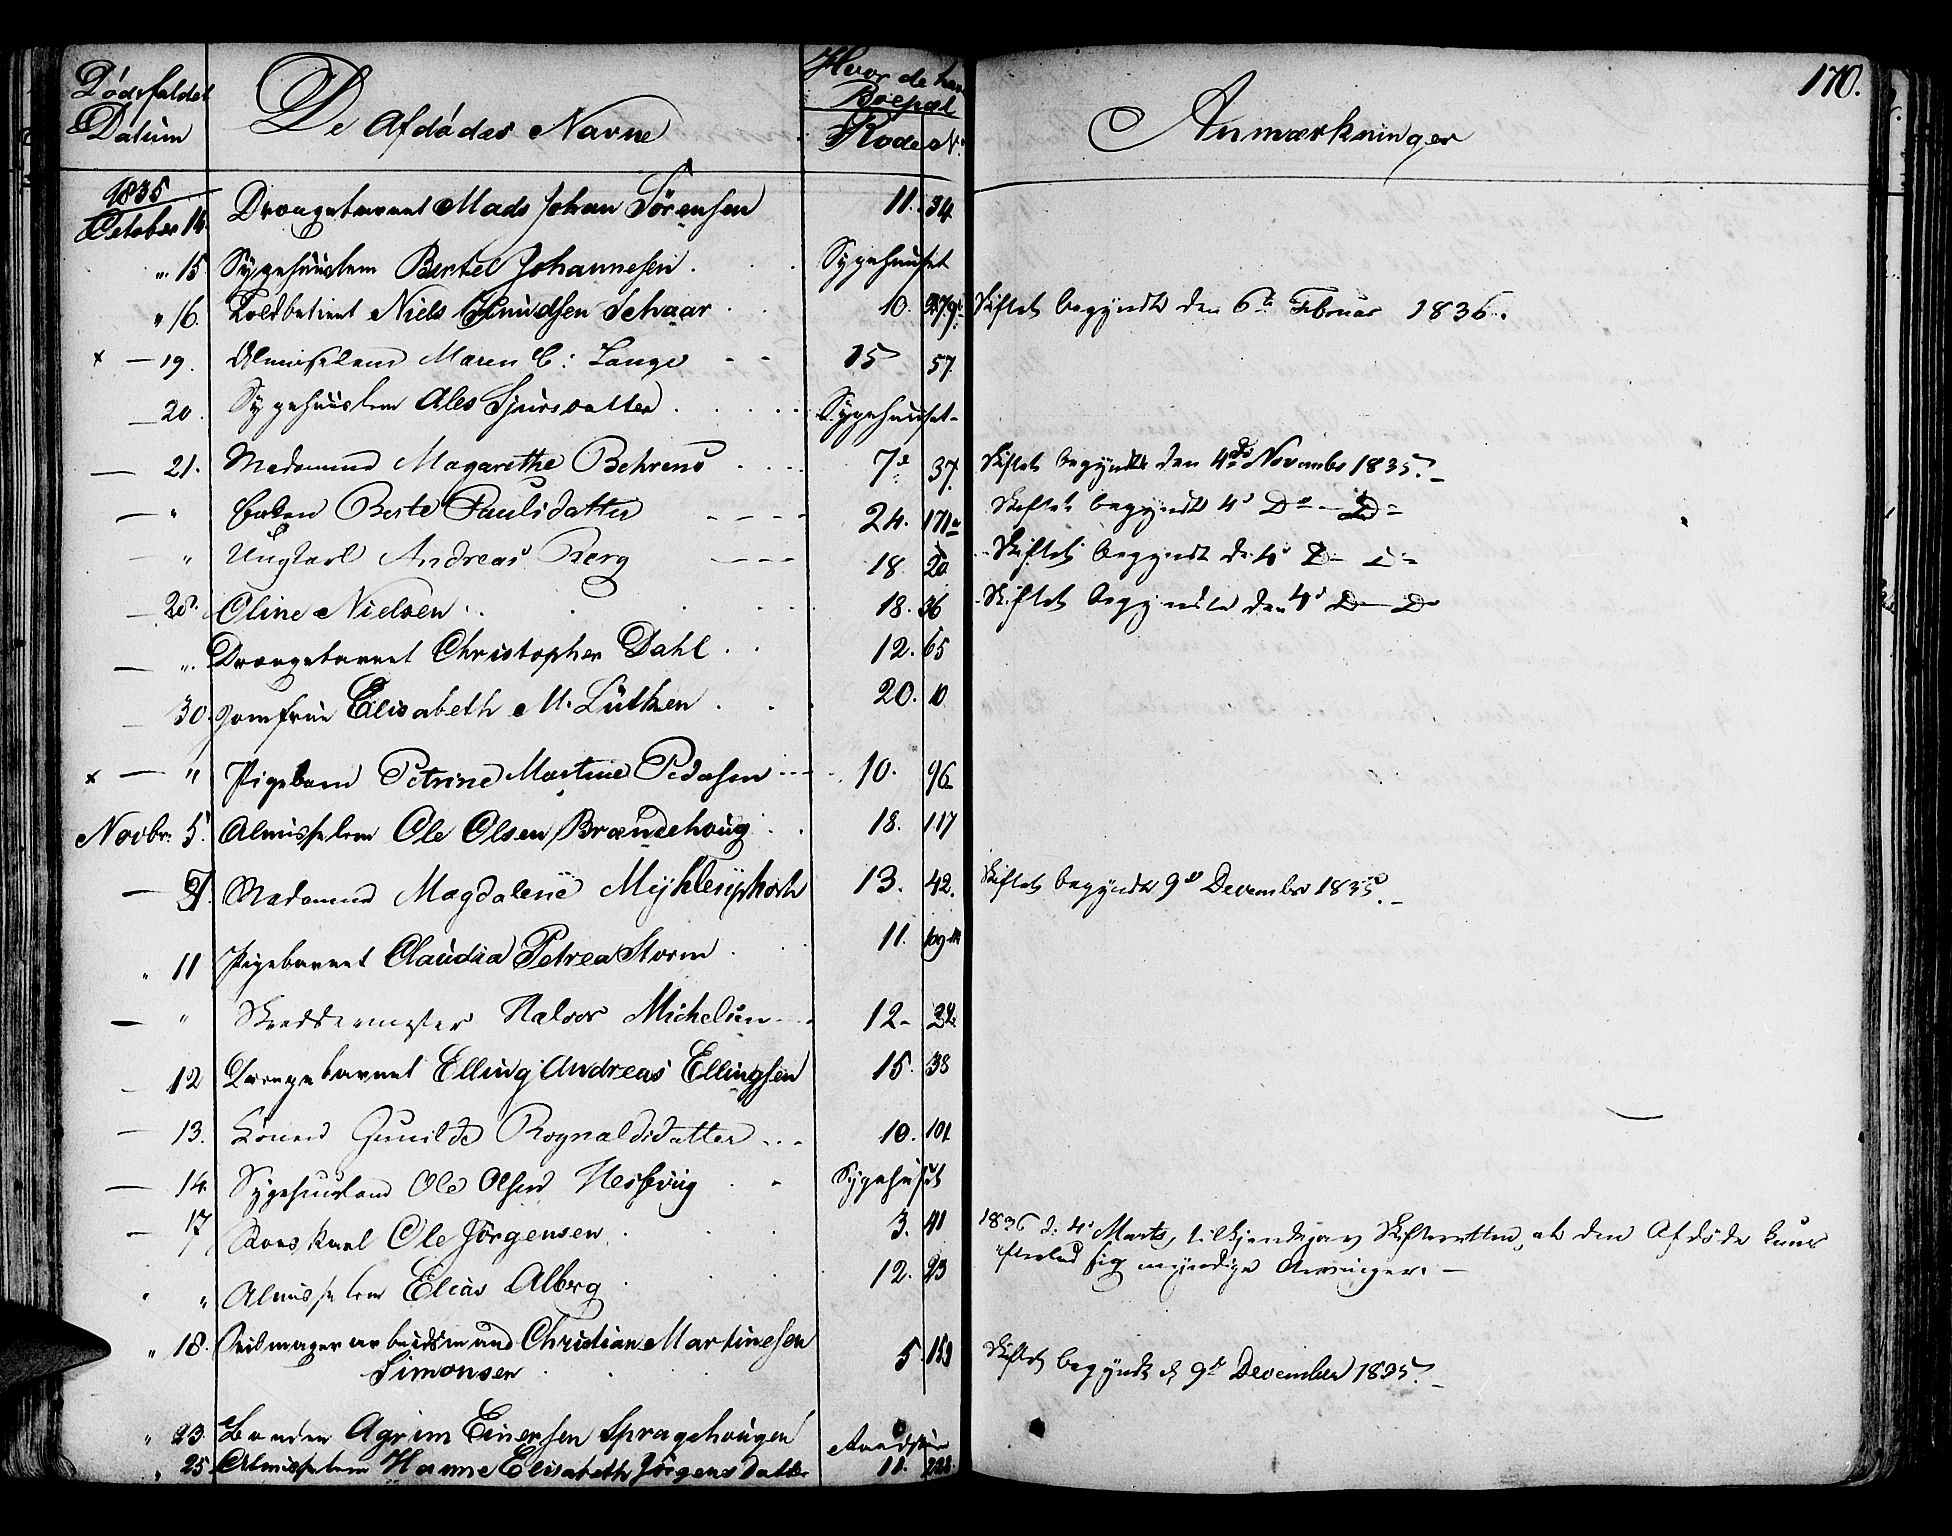 170.
Dødsfaldet Datum
De Afdødes Navne
Hvor de har Boepæl
Rode No.
Anmærkninger
1835
October 14. Drængebarnet Mads Johan Sörensen 11. 34.
" 15 Sygehuuslem Bertel Johannesen Sygehuset
" 16. Toldbetient Niels Knudsen Schaar 10. Skiftet begyndte den 6te Februar 1836.
x — 19. Almisselem Maren C: Lange 15 57.
— 20. Sygehuuslem Ales Sjursdatter Sygehuuset
— 21. Madamme Magarethe Behrens 7de 37. Skiftet begyndte den 4de November 1835.
— " Enken Berte Paulsdatter 24. 171a Skiftet begyndt 4de Do — Do
— " Ungkarl Andreas Berg 18 20 Skiftet begyndt d. 4de Do — Do
— 28. Oline Nielsen 18. 36 Skiftet begyndte den 4de Do — Do
— ". Drængebarnet Christopher Dahl 12. 65
— 30. Jomfrue Elisabeth M. Lütken 20. 10
x — " Pigebarn Petrine Martine Pedersen 10. 96
Novbr. 5. Almisselem Ole Olsen Brandehoug 18. 117
— 7. Madamme Magdalene 13. 42. Skiftet begyndte 9de December 1835.
" 11 Pigebarnet Claudia Petrea Storm 11. 109
— " Skreddermester Halvor Michelsen 12 22
— 12 Drængebarnet Elling Andreas Ellingsen 15. 38
— 13. Konen Gunilde Rognaldsdatter 10. 101
— 14. Sygehuuslem Ole Olsen Hesseviig Sygehuset
— 17 Roerskarl Ole Jörgensen 3. 41 1836 d: 4de Marts, tilkjendegav Skifteretten, at den Afdøde kuns
efterlod sig myndige Arvinger.
" " Almisselem Elias Alberg 12. 23
" 18. Seilmagerarbeidsmand Christian Martinesen
Simonsen 5. 159 Skiftet begyndt d. 9de December 1835.
" 23. Bonden Agrim Einersen Spragehougen
" 25. Almisselem Hanne Elisabeth Jörgensdatter 11. 228